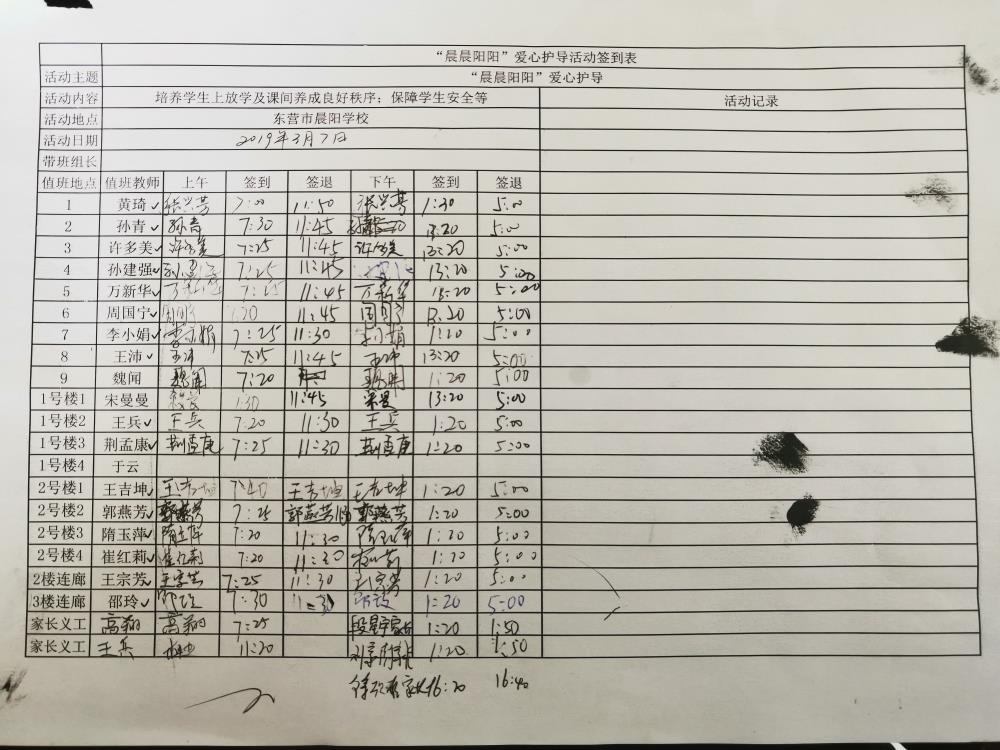 “晨晨阳阳”爱心护导活动签到表
活动主题 “晨晨阳阳”爱心护导
活动内容 培养学生上放学及课间养成良好秩序；保障学生安全等 活动记录
活动地点 东营市晨阳学校
活动日期 2019年3月7日
带班组长
值班地点 值班教师 上午 签到 签退 下午 签到 签退
1 黄琦✓ 张兴芳 7:00 11:50 张兴芳 1:30 5:00
2 孙青✓ 孙青 7:30 11:45 13:20 5:00
3 许多美✓ 许多美 7:25 11:45 许多美 13:20 5:00
4 孙建强✓ 孙建强 7:25 11:45 13:20 5:00
5 万新华✓ 万新华 7:25 11:45 万新华 13:20 5:00
6 周国宁✓ 周国宁 11:45 周国宁 13:20 5:00
7 李小娟✓ 李小娟 7:25 11:30 李小娟 1:20 5:00
8 王沛✓ 王沛 7:25 11:45 王沛 13:20 5:00
9 魏闻 魏闻 7:20 魏闻 1:20 5:00
1号楼1 宋曼曼 11:45 宋曼 13:20 5:00
1号楼2 王兵✓ 王兵 7:20 11:30 王兵 1:20 5:00
1号楼3 荆孟康✓ 荆孟康 7:25 11:30 荆孟康 1:20 5:00
1号楼4 于云
2号楼1 王吉坤✓ 王吉坤 7:40 王吉坤 王吉坤 1:20 5:00
2号楼2 郭燕芳✓ 郭燕芳 7:25 郭燕芳 郭燕芳 1:20 5:00
2号楼3 隋玉萍✓ 隋玉萍 7:20 11:30 隋玉萍 1:20 5:00
2号楼4 崔红莉✓ 崔红莉 7:20 11:30 1:20 5:00
2楼连廊 王宗芳✓ 王宗芳 7:25 11:30 王宗芳 1:20 5:00
3楼连廊 邵玲✓ 邵玲 7:30 11:30 邵玲 1:20 5:00
家长义工 高翔 高翔 7:25 1:20 1:50
家长义工 王兵 11:20 1:20 1:50
16:20 16:40